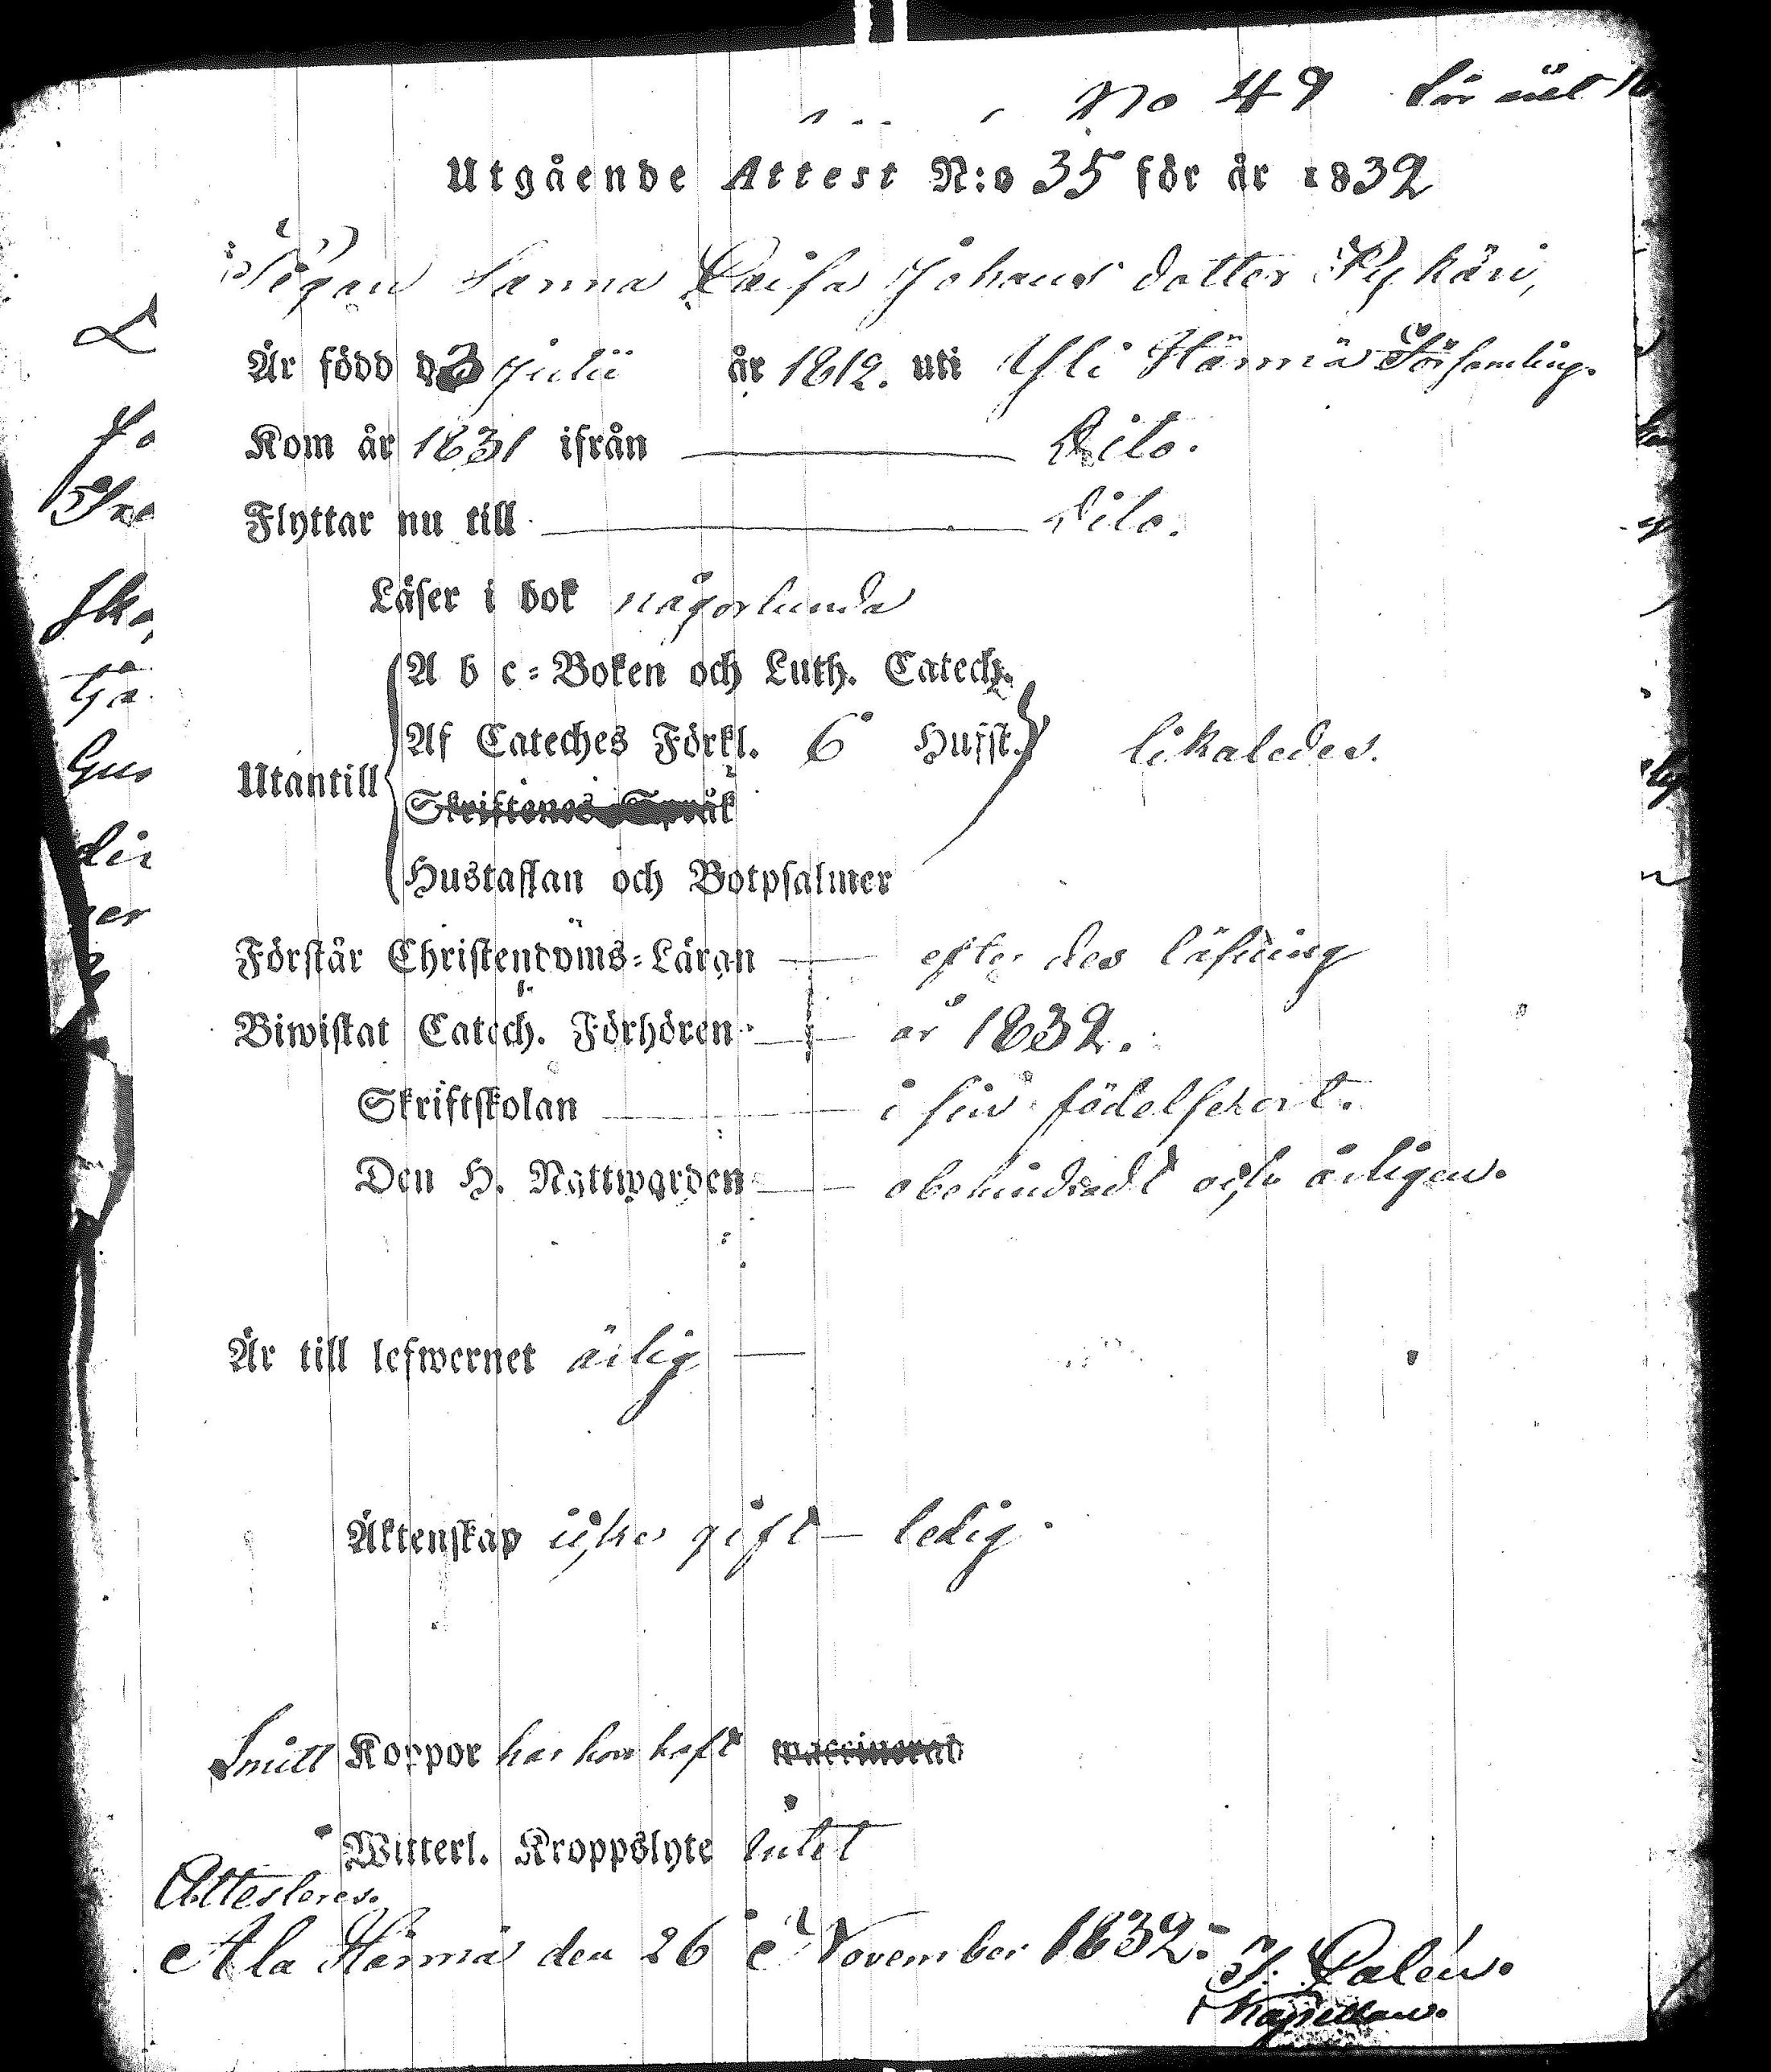 No 49
Utgående Attest N:o 35 för år 1832
Pigan Sanna Caisa Johans dotter Pykäri,
Är född d 3 Julii år 1812. uti Yli Härmä Församling.
Kom år 1831 ifrån Dito.
Flyttar nu till Dito.
Läser i bok någorlunda
A b c-Boken och Luth. Catech.
Af Cateches Förkl. 6 Hufst. likaledes.
Utantill
Skriftenes Språk
Hustaflan och Botpsalmer
Förstår Christendoms-Läran efter des läsning
Biwistat Catech. Förhören år 1832.
Skriftskolan i sin födelseort.
Den H. Nattwarden obehindradt och årligen.
Är till lefwernet ärlig
Äktenskap icke gift - ledig.
Koppor har hon haft waccinerad
Witterl. Kroppslyte intet
Attesteres.
Ala Härmä den 26 November 1832.
Kapellan.